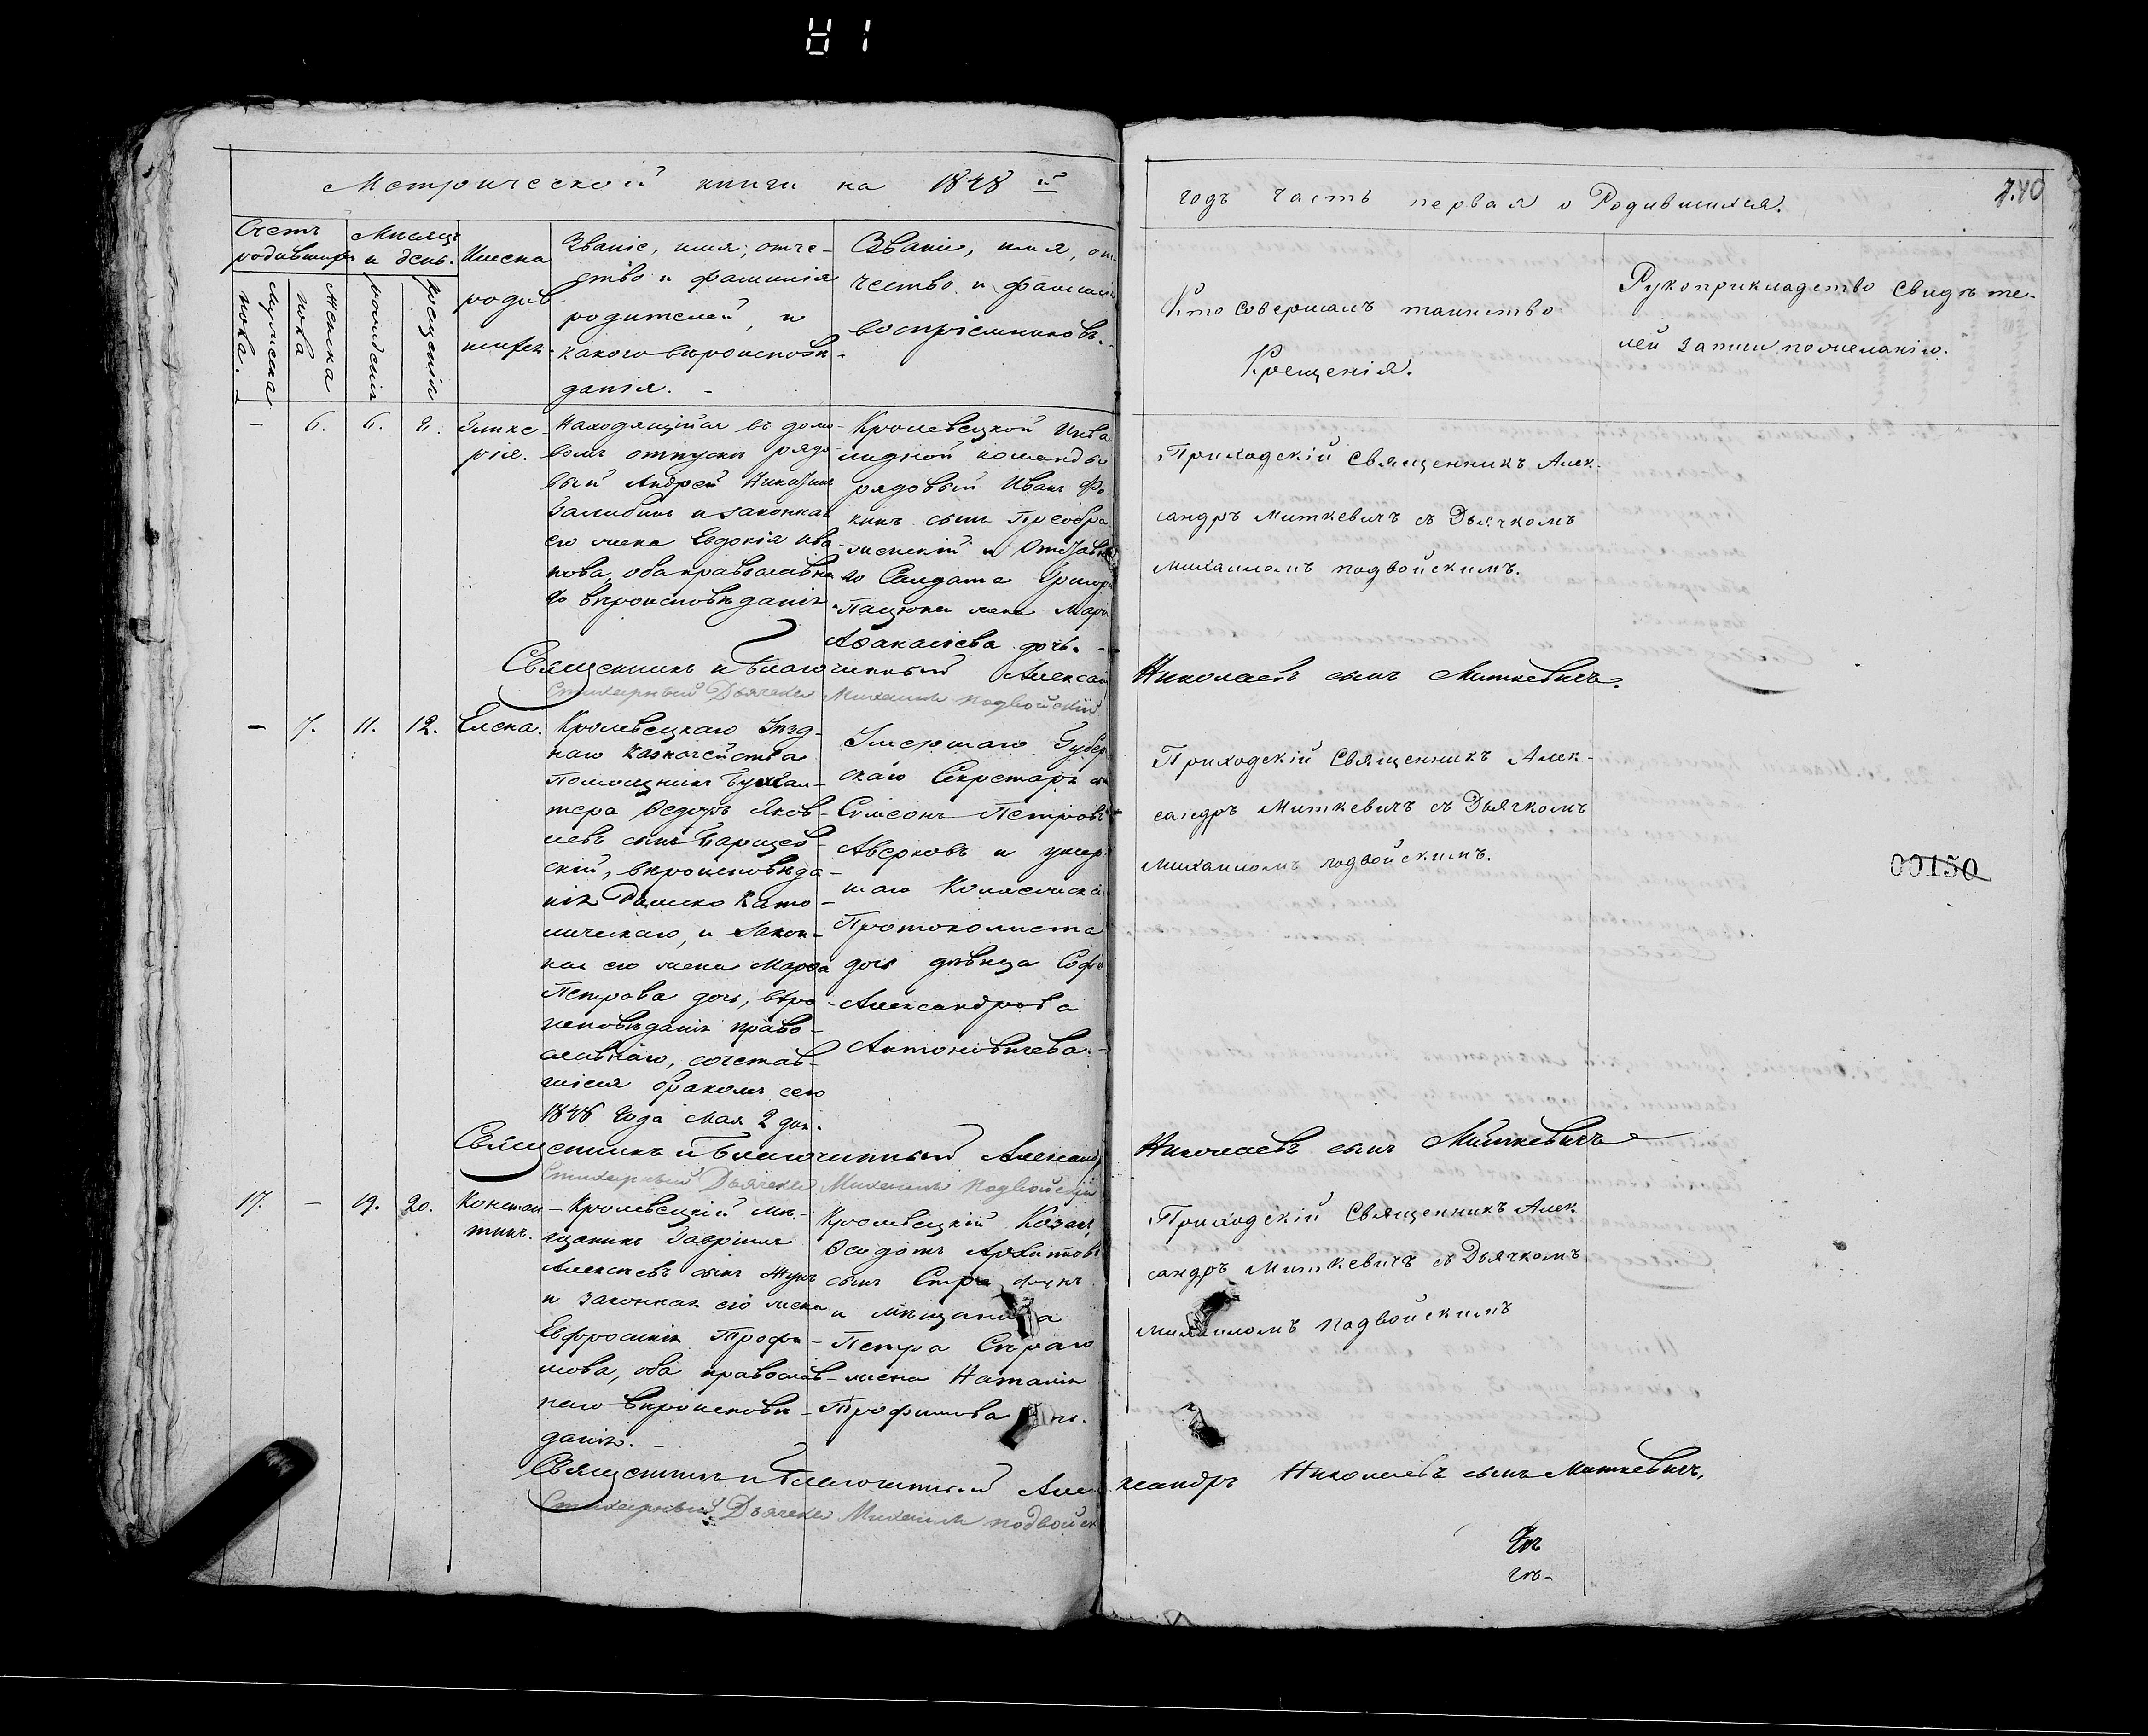 Метрической книги на 1848 й
годъ часть первая о Родившихся.
740
Счетъ родившихся
Мужеска пола.
Женска пола
Мѣсяцъ и день.
рожденія
крещенія
Имена
родив-
шихся.
Званіе, имя, отче-
ство и фамилія
родителей, и
какого вѣроисповѣ-
данія.
Званіе, имя, от-
чество и фамилія
воспріемниковъ.
Кто совершалъ таинство
Крещенія.
Рукоприкладство свидѣте-
лей записи по желанію.
– 6. 6. 8. Глике-
рія.
Находящійся въ домо-
вомъ отпуску рядо-
вый Андрей
и законная
его жена Евдокія Ива-
нова, оба православна
го вѣроисповѣданія
Кролевецкой Инва
лидной команды
рядовый Иванъ Фо-
кинъ сынъ Преобра
женскій и Отставна
го Салдата Григорія
Пацюка жена Марія
Аѳанасіева дочь.
Приходскій Священникъ Алек-
сандръ Миткевичъ съ Дьячкомъ
Михаиломъ Подвойскимъ.
Священникъ и Благочинный Александръ Николаевъ сынъ Миткевичъ.
Стихарный Дьячекъ Михаилъ Подвойскій
– 7. 11. 12. Елена.
Кролевецкаго Уѣзд-
наго Казначейства
Помощникъ Бухгал-
тера Ѳедоръ Яков-
левъ сынъ
скій, вѣроисповѣда-
нія Римско Като-
лическаго, и Закон-
ная его жена Марѳа
Петрова дочь, вѣро-
исповѣданія право-
славнаго, сочетав-
шіеся бракомъ сего
1848 года Мая 2 дня.
Умершаго Губерн
скаго Секретаря сынъ
Симеонъ Петровъ
Аверковъ и умер
шаго Коллежскаго
Протоколиста
дочь дѣвица Софія
Александрова
Антоновичева.
Приходскій Священникъ Алек-
сандръ Миткевичъ съ Дьячкомъ
Михаиломъ Подвойскимъ.
00150
Священникъ и Благочинный Александръ Николаевъ сынъ Миткевичъ
Стихарный Дьячекъ Михаилъ Подвойскій
17. – 19. 20. Констан
тинъ.
Кролевецкій мѣ-
щанинъ Гавріилъ
Алексѣевъ сынъ
и законная его жена
Евфросинія Трофи-
мова, оба православ-
наго вѣроисповѣ-
данія.
Кролевецкій Козакъ
Ѳедотъ Архиповъ
сынъ
и мѣщанина
Петра Сѣраго
жена Наталія
Трофимова дочь.
Приходскій Священникъ Алек
сандръ Миткевичъ съ Дьячкомъ
Михаиломъ Подвойскимъ
Священникъ и Благочинный Александръ Николаевъ сынъ Миткевичъ.
Стихарный Дьячекъ Михаилъ Подвойск